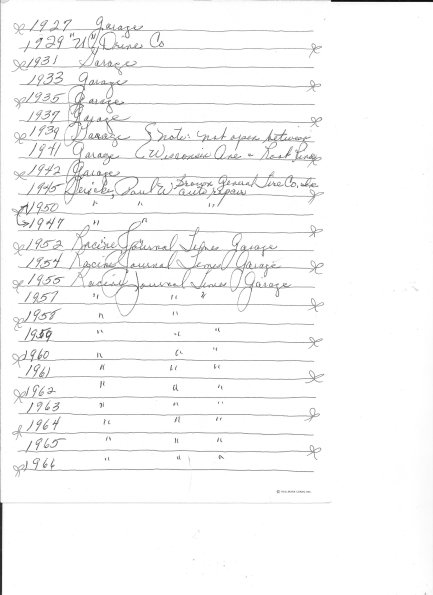 1927 Garage
1929 "U" Drive Co
1931 Garage
1933 Garage
1935 Garage
1937 Garage
1939 Garage { note: not open between
1941 Garage ( Wisconsin Ave + Root River
1942 Garage
1945 Paul W. Brown General Tire Co, Inc
auto repair
1950 " " "
1947 " "
1952 Racine Journal Times Garage
1954 Racine Journal Times Garage
1955 Racine Journal Times Garage
1957 " " "
1958 " "
1959 " " "
1960 " " "
1961 " " "
1962 " " "
1963 " " "
1964 " " "
1965 " " "
1966 " " "